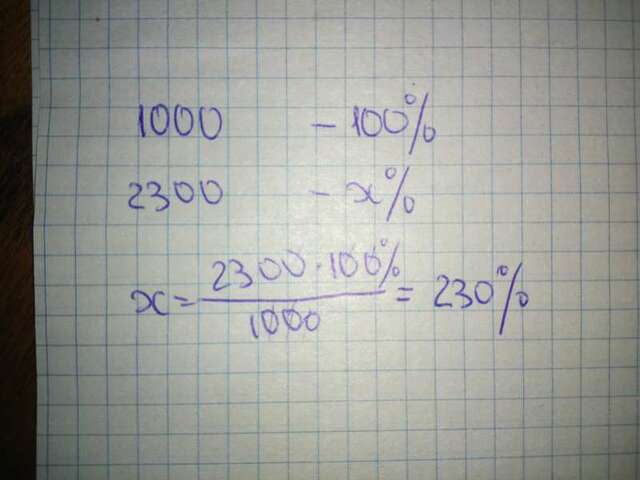 1000 - 100%
2300 - x%
x = 2300 · 100% / 1000 = 230%